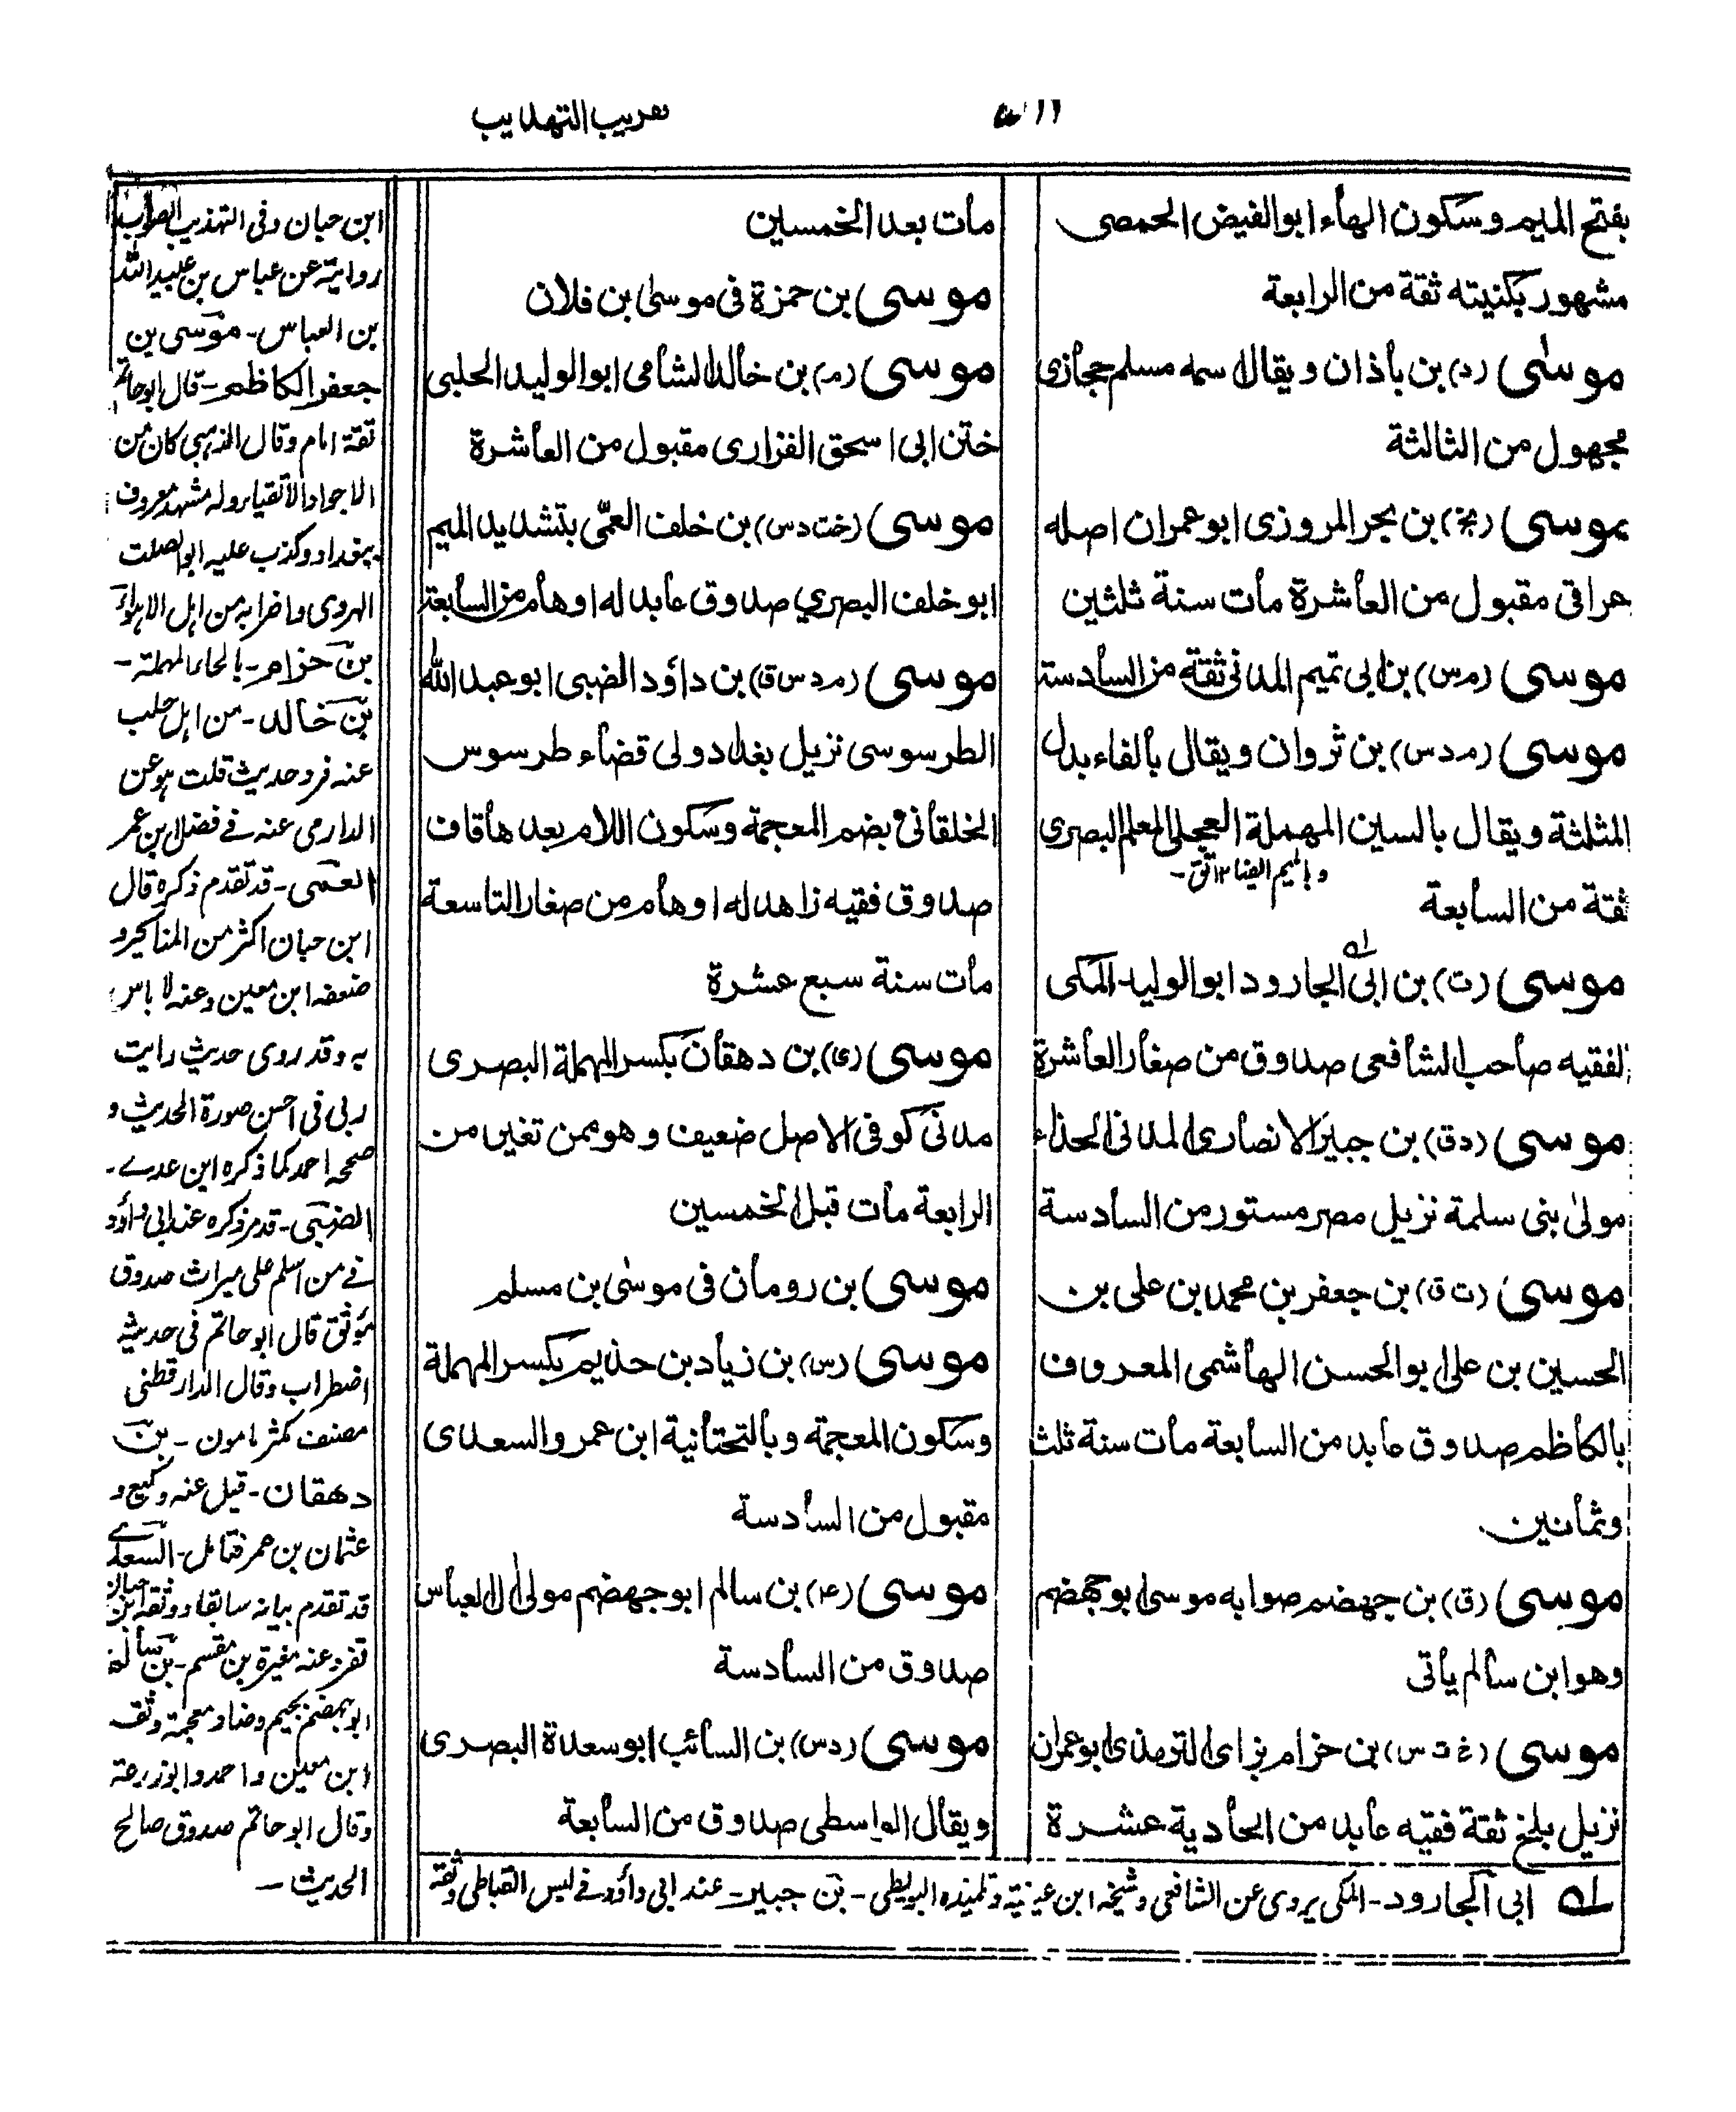 تقريب التهذيب
بفتح الميم وسكون الهاء ابوالفيض الحمصى
مشهور بكنيته ثقة من الرابعة
موسىٰ (د) بن بأذان ويقال اسمه مسلم حجازى
مجهول من الثالثة
موسى (بخ) بن بحر المروزى ابوعمران اصله
عراقى مقبول من العأشرة مأت سنة ثلثين
موسى (م س) بن ابى تميم المدنى ثقة من السأدسة
موسى (م د س) بن ثروان ويقال بألفاء بدل
المثلثة ويقال بالسين المهملة العجلى المعلم البصرى
وبالميم ايضا ١٢ تق -
ثقة من السأبعة
موسى (ت) بن ابى الجارود ابوالوليد المكى
الفقيه صأحب الشأفعى صدوق من صغأر العأشرة
موسى (د ق) بن جبير الانصارى المدنى الحذاء
مولىٰ بنى سلمة نزيل مصر مستور من السأدسة
موسى (ت ق) بن جعفر بن محمد بن على بن
الحسين بن على ابوالحسن الهأشمى المعروف
بالكأظم صدوق عابد من السأبعة مأت سنة ثلث
وثمأنين
موسى (ق) بن جهضم صوابه موسى ابوجهضم
وهو ابن سألم يأتى
موسى (خ ت س) بن حزام بزاى الترمذى ابوعمران
نزيل بلخ ثقة فقيه عأبد من الحأدية عشرة
مأت بعد الخمسين
موسى بن حمزة فى موسىٰ بن فلان
موسى (م) بن خألد الشأمى ابوالوليد الحلبى
ختن ابى اسحق الفزارى مقبول من العأشرة
موسى (خت د س) بن خلف العمّى بتشديد الميم
ابوخلف البصري صدوق عابد له اوهأم من السأبعة
موسى (م د س ق) بن دأؤد الضبى ابوعبدالله
الطرسوسى نزيل بغداد ولى قضأء طرسوس
الخلقأنى بضم المعجمة وسكون اللام بعدهأ قاف
صدوق فقيه زاهد له اوهأم من صغار التاسعة
مأت سنة سبع عشرة
موسى (ى) بن دهقأن بكسر المهملة البصرى
مدنى كوفى الاصل ضعيف وهو ممن تغير من
الرابعة مأت قبل الخمسين
موسى بن رومأن فى موسىٰ بن مسلم
موسى (س) بن زياد بن حذيم بكسر المهملة
وسكون المعجمة وبألتحتأنية ابن عمرو السعدى
مقبول من السأدسة
موسى (٤) بن سالم ابوجهضم مولىٰ آل العبأس
صدوق من السأدسة
موسى (د س) بن السأئب ابوسعدة البصرى
ويقأل الواسطى صدوق من السأبعة
ابن حبان وفى التهذيب الصواب
روايته عن عباس بن عبيدالله
بن العباس - موسى بن
جعفر الكاظم - قال ابوحاتم
ثقة امام وقال الذهبى كان من
الاجواد الاتقياء وله مشهد معروف
ببغداد وكذب عليه ابوالصلت
الهروى واضرابه من اهل الاهواء
بن حزام - بالحاء المهملة -
بن خالد - من اهل حلب
عنه فرد حديث قلت هو عن
الدارمى عنه فے فضل ابن عمر
العمى - قد تقدم ذكره قال
ابن حبان اكثر من المناكير و
ضعفه ابن معين وعنه لا باس
به وقد روى حديث رايت
ربى فى احسن صورة الحديث و
صححه احمد كما ذكره ابن عدے -
الضبى - قدم ذكره عند ابى داؤد
فے من اسلم على ميراث صدوق
موثق قال ابوحاتم فى حديثه
اضطراب وقال الدارقطنى
مصنف مكثر مامون - بن
دهقان - قيل عنه وكيع و
عثمان بن عمر فتامل - السعدے
قد تقدم بيانه سابقا ووثقه ابن حبان
تفرد عنه مغيرة بن مقسم - بن سألم
ابوجهضم بجيم وضاد معجمة وثقه
ابن معين واحمد وابوزرعة
وقال ابوحاتم صدوق صالح
الحديث —
لـه ابى الجارود - المكى يروى عن الشافعى وشيخه ابن عيينة وتلميذه البويطى - بن جبير - عند ابى داؤد فے لبس القباطى وثقه